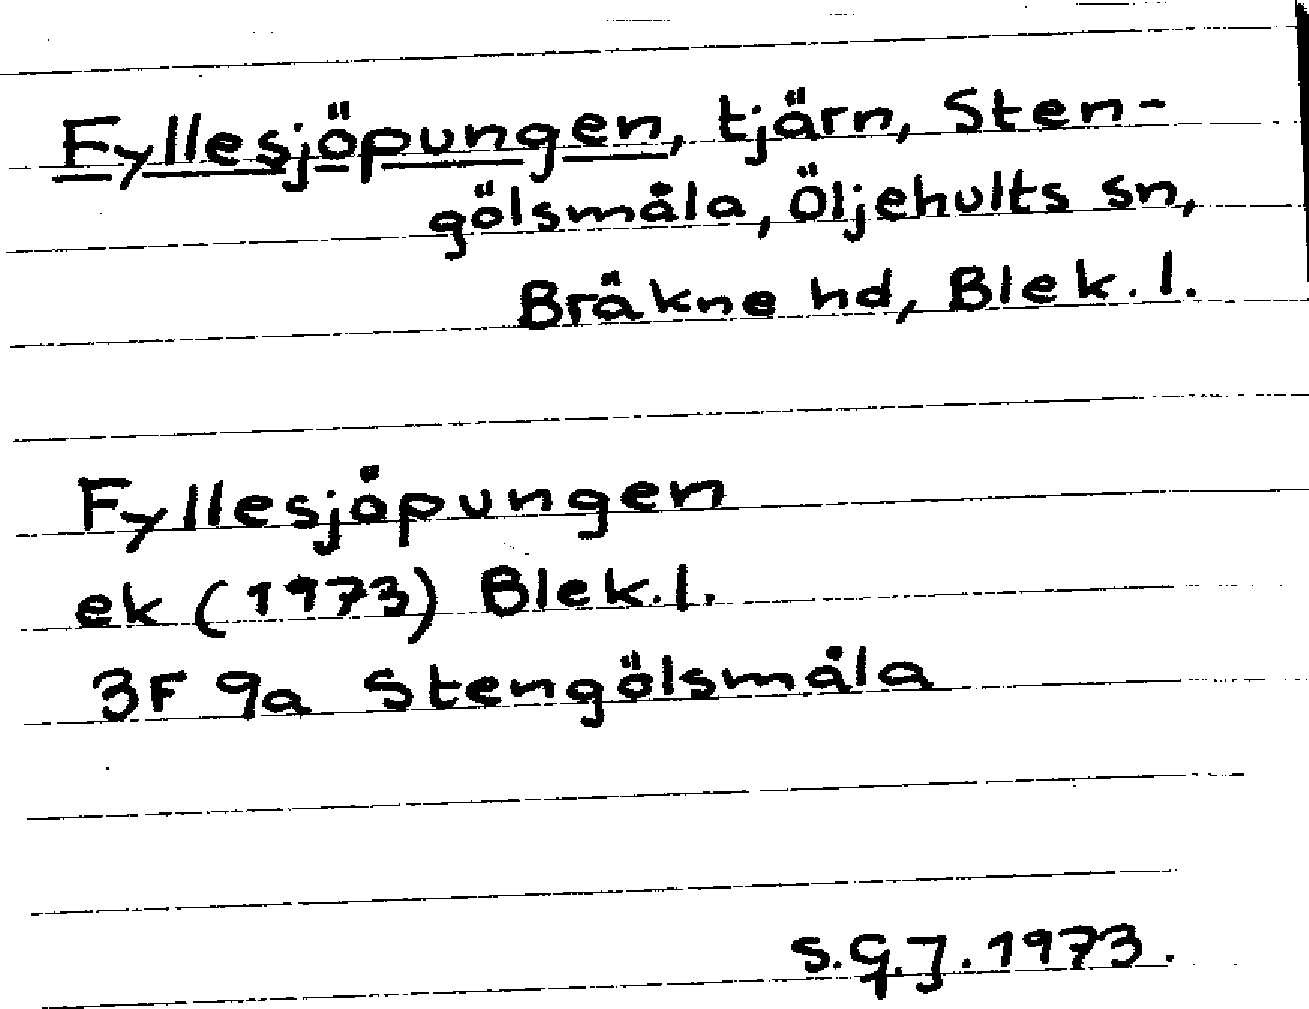 Fyllesjöpungen, tjärn, Sten-
gölsmåla, Öljehults sn,
Bräkne hd, Blek. l.
Fyllesjöpungen
ek (1973) Blek. l.
3F 9a Stengölsmåla
S.G.J. 1973.